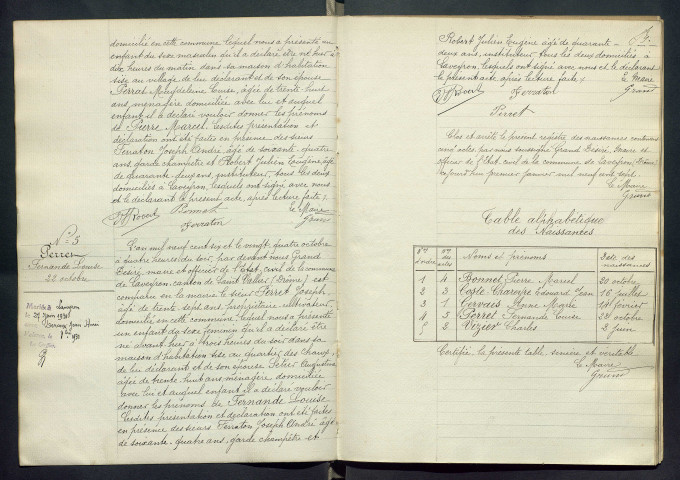 domiciliée en cette commune lequel nous a présenté un
enfant du sexe masculin qu'il a déclaré être né hier à
dix heures du matin dans sa maison d'habitation
sise au village de lui déclarant et de son épouse
Perrat Magdeleine Louise, âgée de trente-huit
ans, ménagère domiciliée avec lui et auquel
enfant il a déclaré vouloir donner les prénoms
de Pierre Marcel. Lesdites présentation et
déclaration ont été faites en présence des sieurs
Ferraton Joseph André âgé de soixante-quatre
ans, garde champêtre et Robert Julien Eugène, âgé
de quarante-deux ans, instituteur, tous les deux
domiciliés à Laveyron, lesquels ont signé avec nous
et le déclarant le présent acte, après lecture faite.
JRobert Bonnet Le Maire
Ferraton Grand
N° 5
Perret
Fernande Louise
22 octobre
Mariée à Laveyron
le 27 Juin 1931
avec
L'an mil neuf cent six et le vingt-quatre octobre
à quatre heures du soir, par devant nous Grand
Désiré, maire et officier de l'état civil de la commune
de Laveyron, canton de Saint Vallier (Drôme) est
comparu en la mairie le sieur Perret Joseph,
âgé de trente-sept ans, propriétaire-cultivateur,
domicilié en cette commune, lequel nous a présenté
un enfant du sexe féminin qu'il a déclaré être
né avant-hier à trois heures du soir dans sa
maison d'habitation sise au quartier des Champs,
de lui déclarant et de son épouse Augustine
âgée de trente-huit ans ménagère domiciliée
avec lui et auquel enfant il a déclaré vouloir
donner les prénoms de Fernande Louise.
Lesdites présentation et déclaration ont été faites
en présence des sieurs Ferraton Joseph André âgé
de soixante-quatre ans, garde champêtre et
Robert Julien Eugène âgé de quarante-
deux ans, instituteur, tous les deux domiciliés à
Laveyron, lesquels ont signé avec nous et le déclarant
le présent acte après lecture faite.
JRobert Ferraton Le Maire
Grand
Perret
Clos et arrêté le présent registre des naissances contenant
cinq actes par nous soussigné Grand Désiré, maire et
officier de l'état civil de la commune de Laveyron (Drôme)
aujourd'hui premier janvier mil neuf cent sept.
Le Maire
Grand
Table alphabétique
des Naissances
Nos d'ordre Nos des actes Noms et prénoms Date des naissances
1 4 Bonnet Pierre Marcel 20 octobre
2 3 Coste Édouard Jean 16 juillet
3 1 Gervais Anne Marie 24 février
4 5 Perret Fernande Louise 22 octobre
5 2 Vezier Charles 2 juin
Certifiée, la présente table, sincère et véritable
Le Maire
Grand